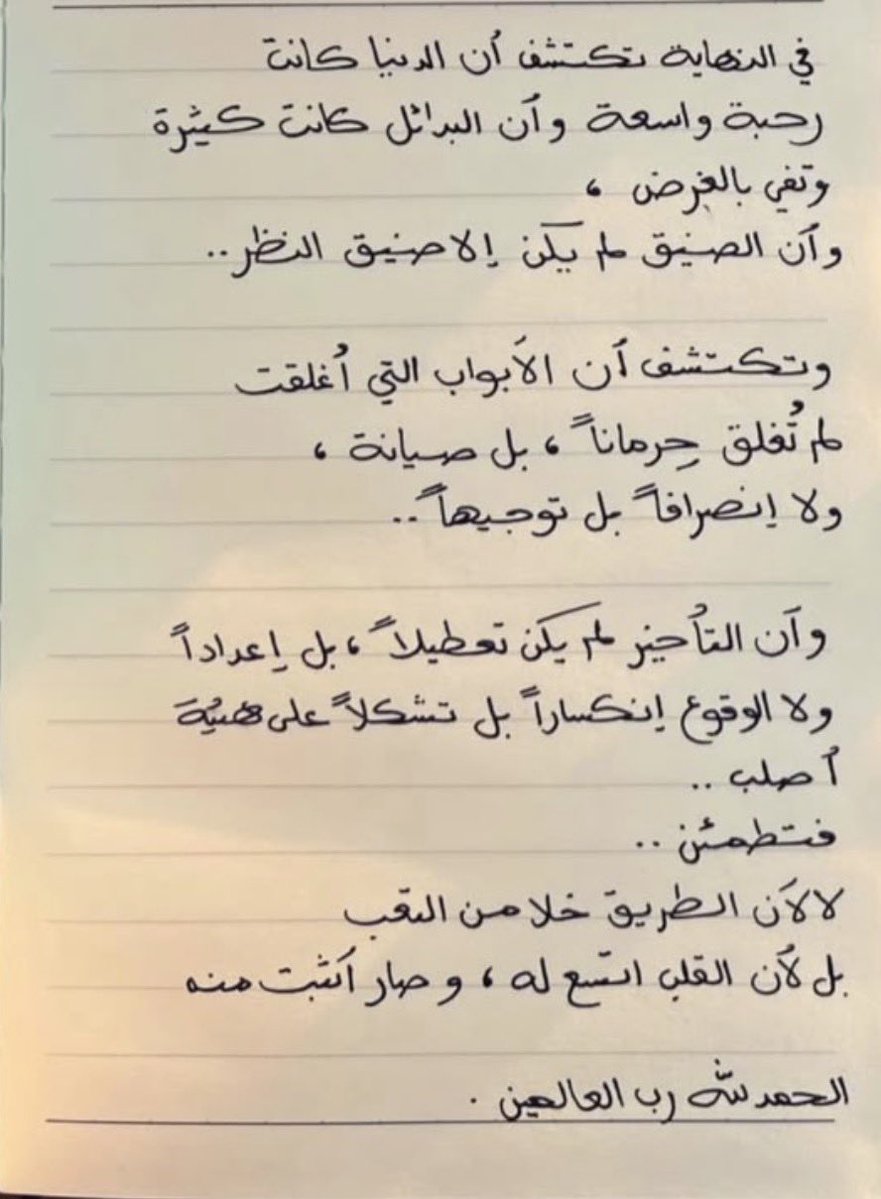 في النهاية تكتشف أن الدنيا كانت
رحبة واسعة وأن البدائل كانت كثيرة
وتفي بالغرض ،
وأن الضيق لم يكن إلا ضيق النظر ..
وتكتشف أن الأبواب التي أُغلقت
لم تُغلق حِرماناً ، بل صيانة ،
ولا إنصرافاً بل توجيهاً ..
وأن التأخير لم يكن تعطيلاً ، بل إعداداً
ولا الوقوع إنكساراً بل تشكلاً على هيئة
أصلب ..
فتطمئن ..
لا لأن الطريق خلا من التعب
بل لأن القلب اتسع له ، وصار أثبت منه
الحمد لله رب العالمين .